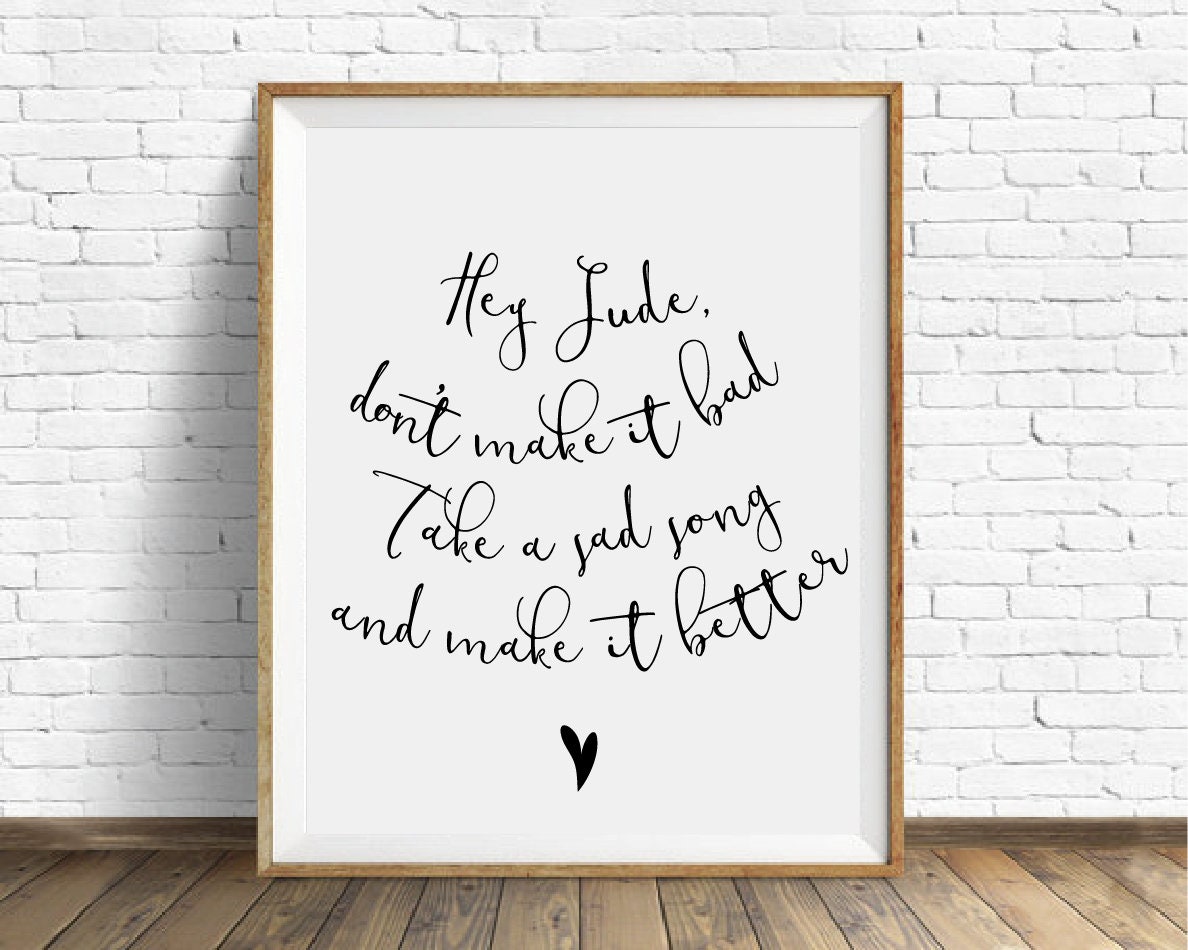 Hey Jude,
don't make it bad
Take a sad song
and make it better